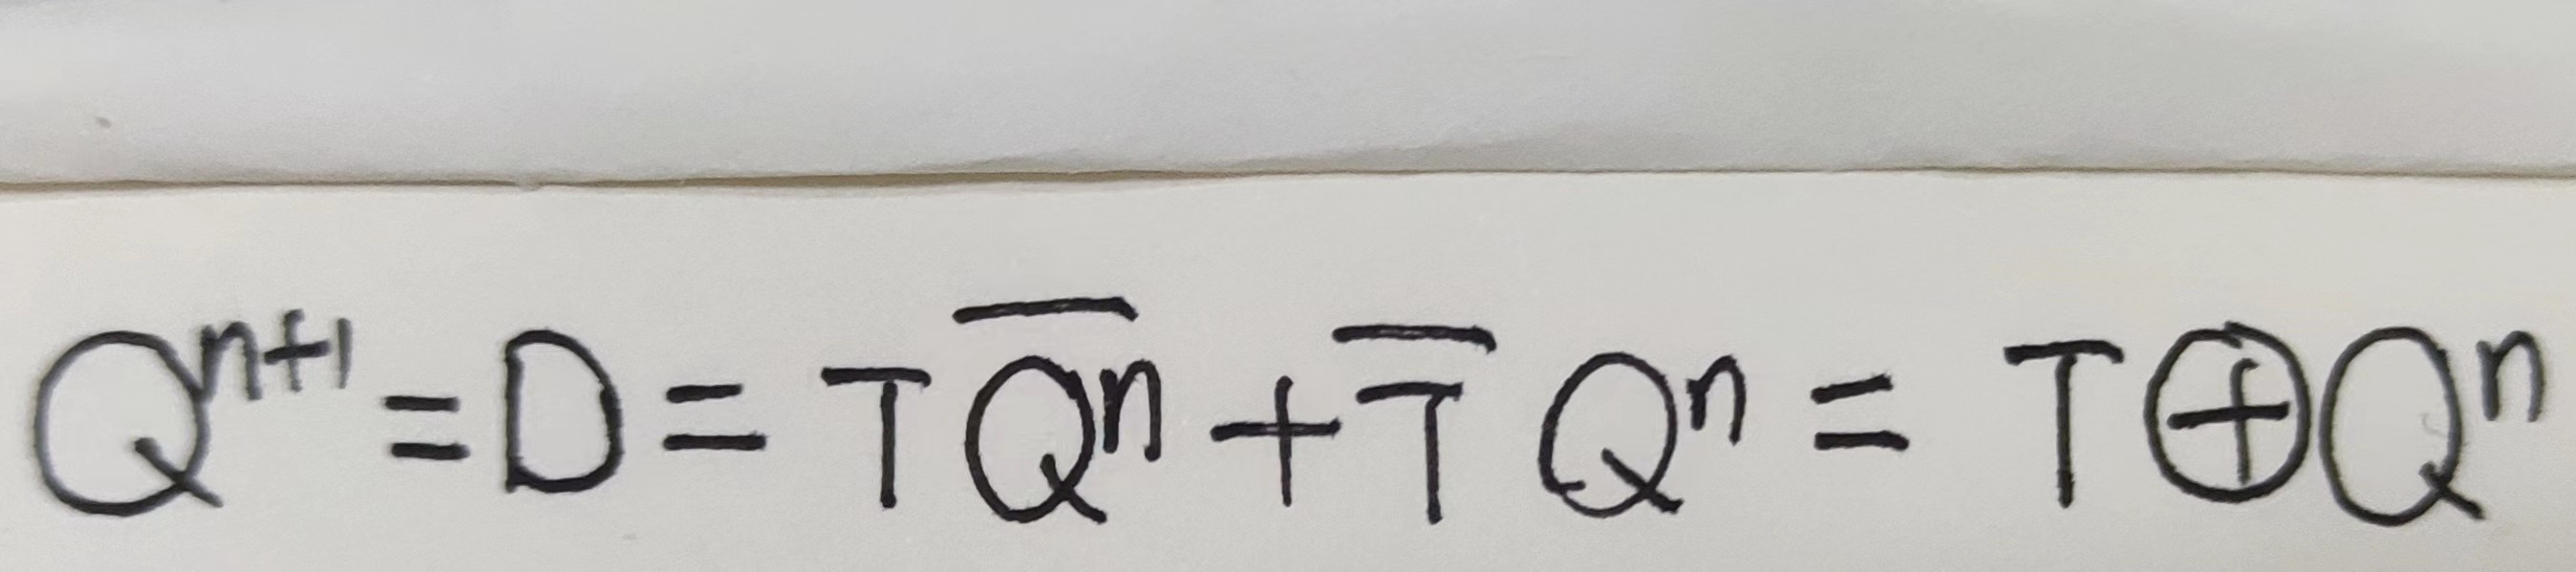 $Q^{n+1} = D = T\overline{Q^n} + \overline{T}Q^n = T \oplus Q^n$